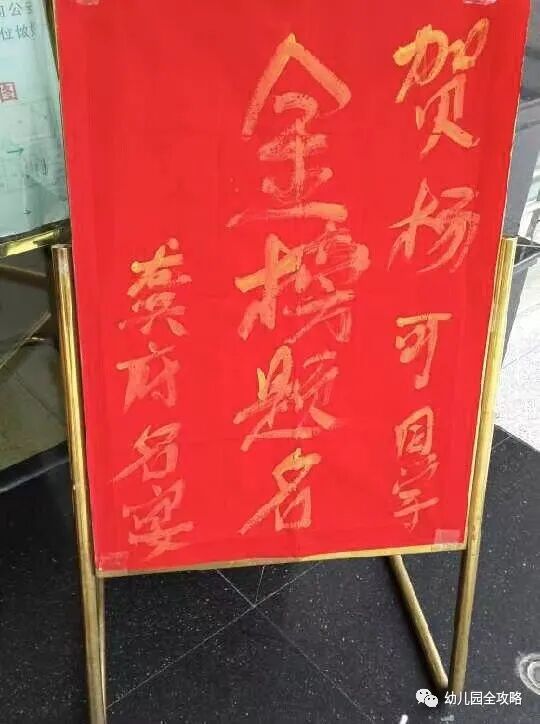 贺杨可同学
金榜题名
龚府名宴
位做
图
幼儿园全攻略